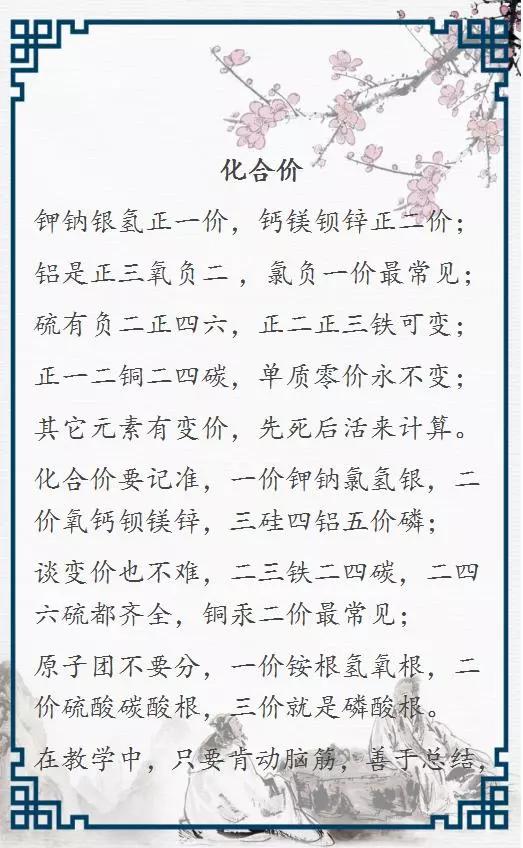 化合价
钾钠银氢正一价，钙镁钡锌正二价；
铝是正三氧负二，氯负一价最常见；
硫有负二正四六，正二正三铁可变；
正一二铜二四碳，单质零价永不变；
其它元素有变价，先死后活来计算。
化合价要记准，一价钾钠氯氢银，二
价氧钙钡镁锌，三硅四铝五价磷；
谈变价也不难，二三铁二四碳，二四
六硫都齐全，铜汞二价最常见；
原子团不要分，一价铵根氢氧根，二
价硫酸碳酸根，三价就是磷酸根。
在教学中，只要肯动脑筋，善于总结，